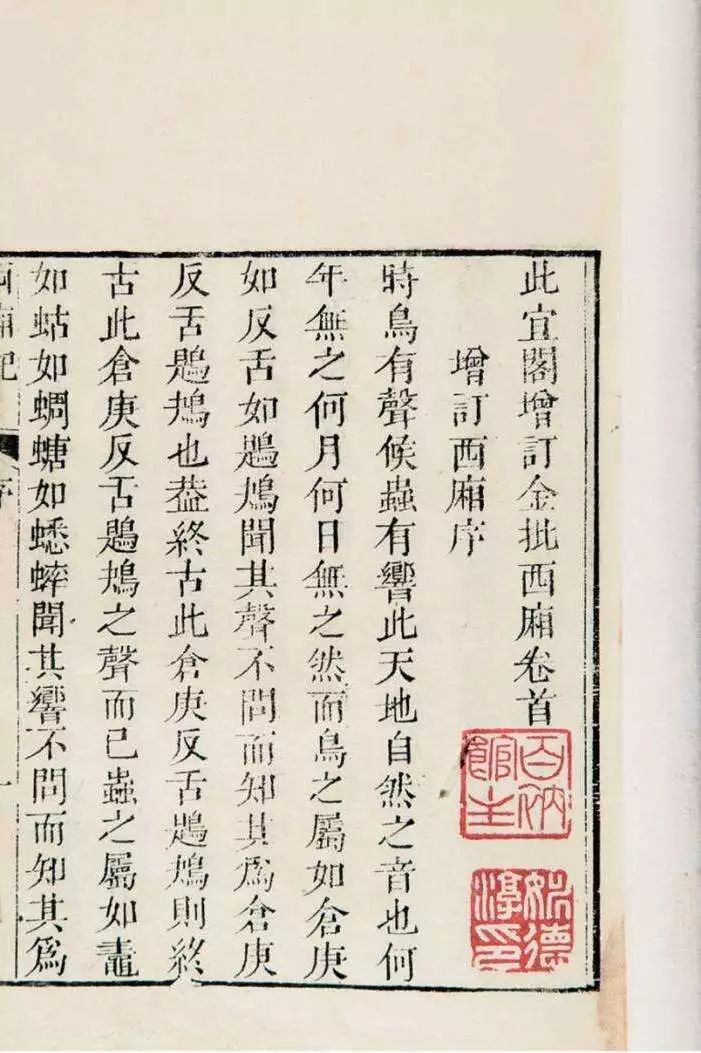 此宜閣增訂金批西廂卷首
增訂西廂序
時鳥有聲候蟲有響此天地自然之音也何
年無之何月何日無之然而鳥之屬如倉庚
如反舌如鶗鴂聞其聲不問而知其為倉庚
反舌鶗鴂也葢終古此倉庚反舌鶗鴂則終
古此倉庚反舌鶗鴂之聲而已蟲之屬如䵷
如蛄如蜩螗如蟋蟀聞其響不問而知其為
西廂記
序
一
百衲
館主
德
淳印